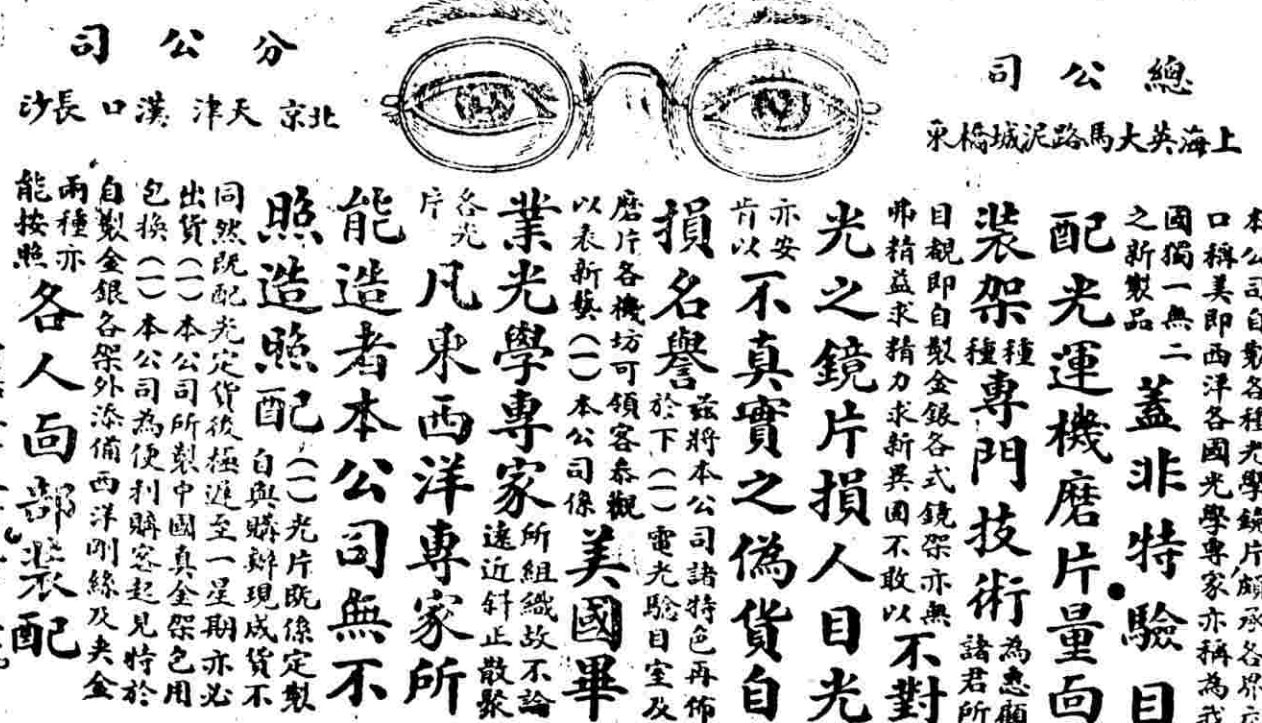 總公司
上海英大馬路泥城橋東
分公司
北京 天津 漢口 長沙
本公司自製各種光學鏡片頗承各界
口稱美即西洋各國光學專家亦稱為我
國獨一無二
之新製品
蓋非特驗目
配光運機磨片量面
裝架
種
種
專門技術
為惠顧
諸君所
目覩即自製金銀各式鏡架亦無
弗精益求精力求新異固不敢以
不對
光之鏡片損人目光
亦安
肯以
不真實之偽貨自
損名譽
茲將本公司諸特色再佈
於下(一)電光驗目室及
磨片各機坊可領客參觀
以表新藝(一)本公司係
美國畢
業光學專家
所組織故不論
遠近斜正散聚
各光
片
凡東西洋專家所
能造者本公司無不
照造照配
(一)光片既係定製
自與購辦現成貨不
同然既配光定貨後極遲至一星期亦必
出貨(一)本公司所製中國真金架包用
包換(一)本公司為便利購客起見特於
自製金銀各架外添備西洋剛絲及夾金
兩種亦
能按照
各人面部裝配